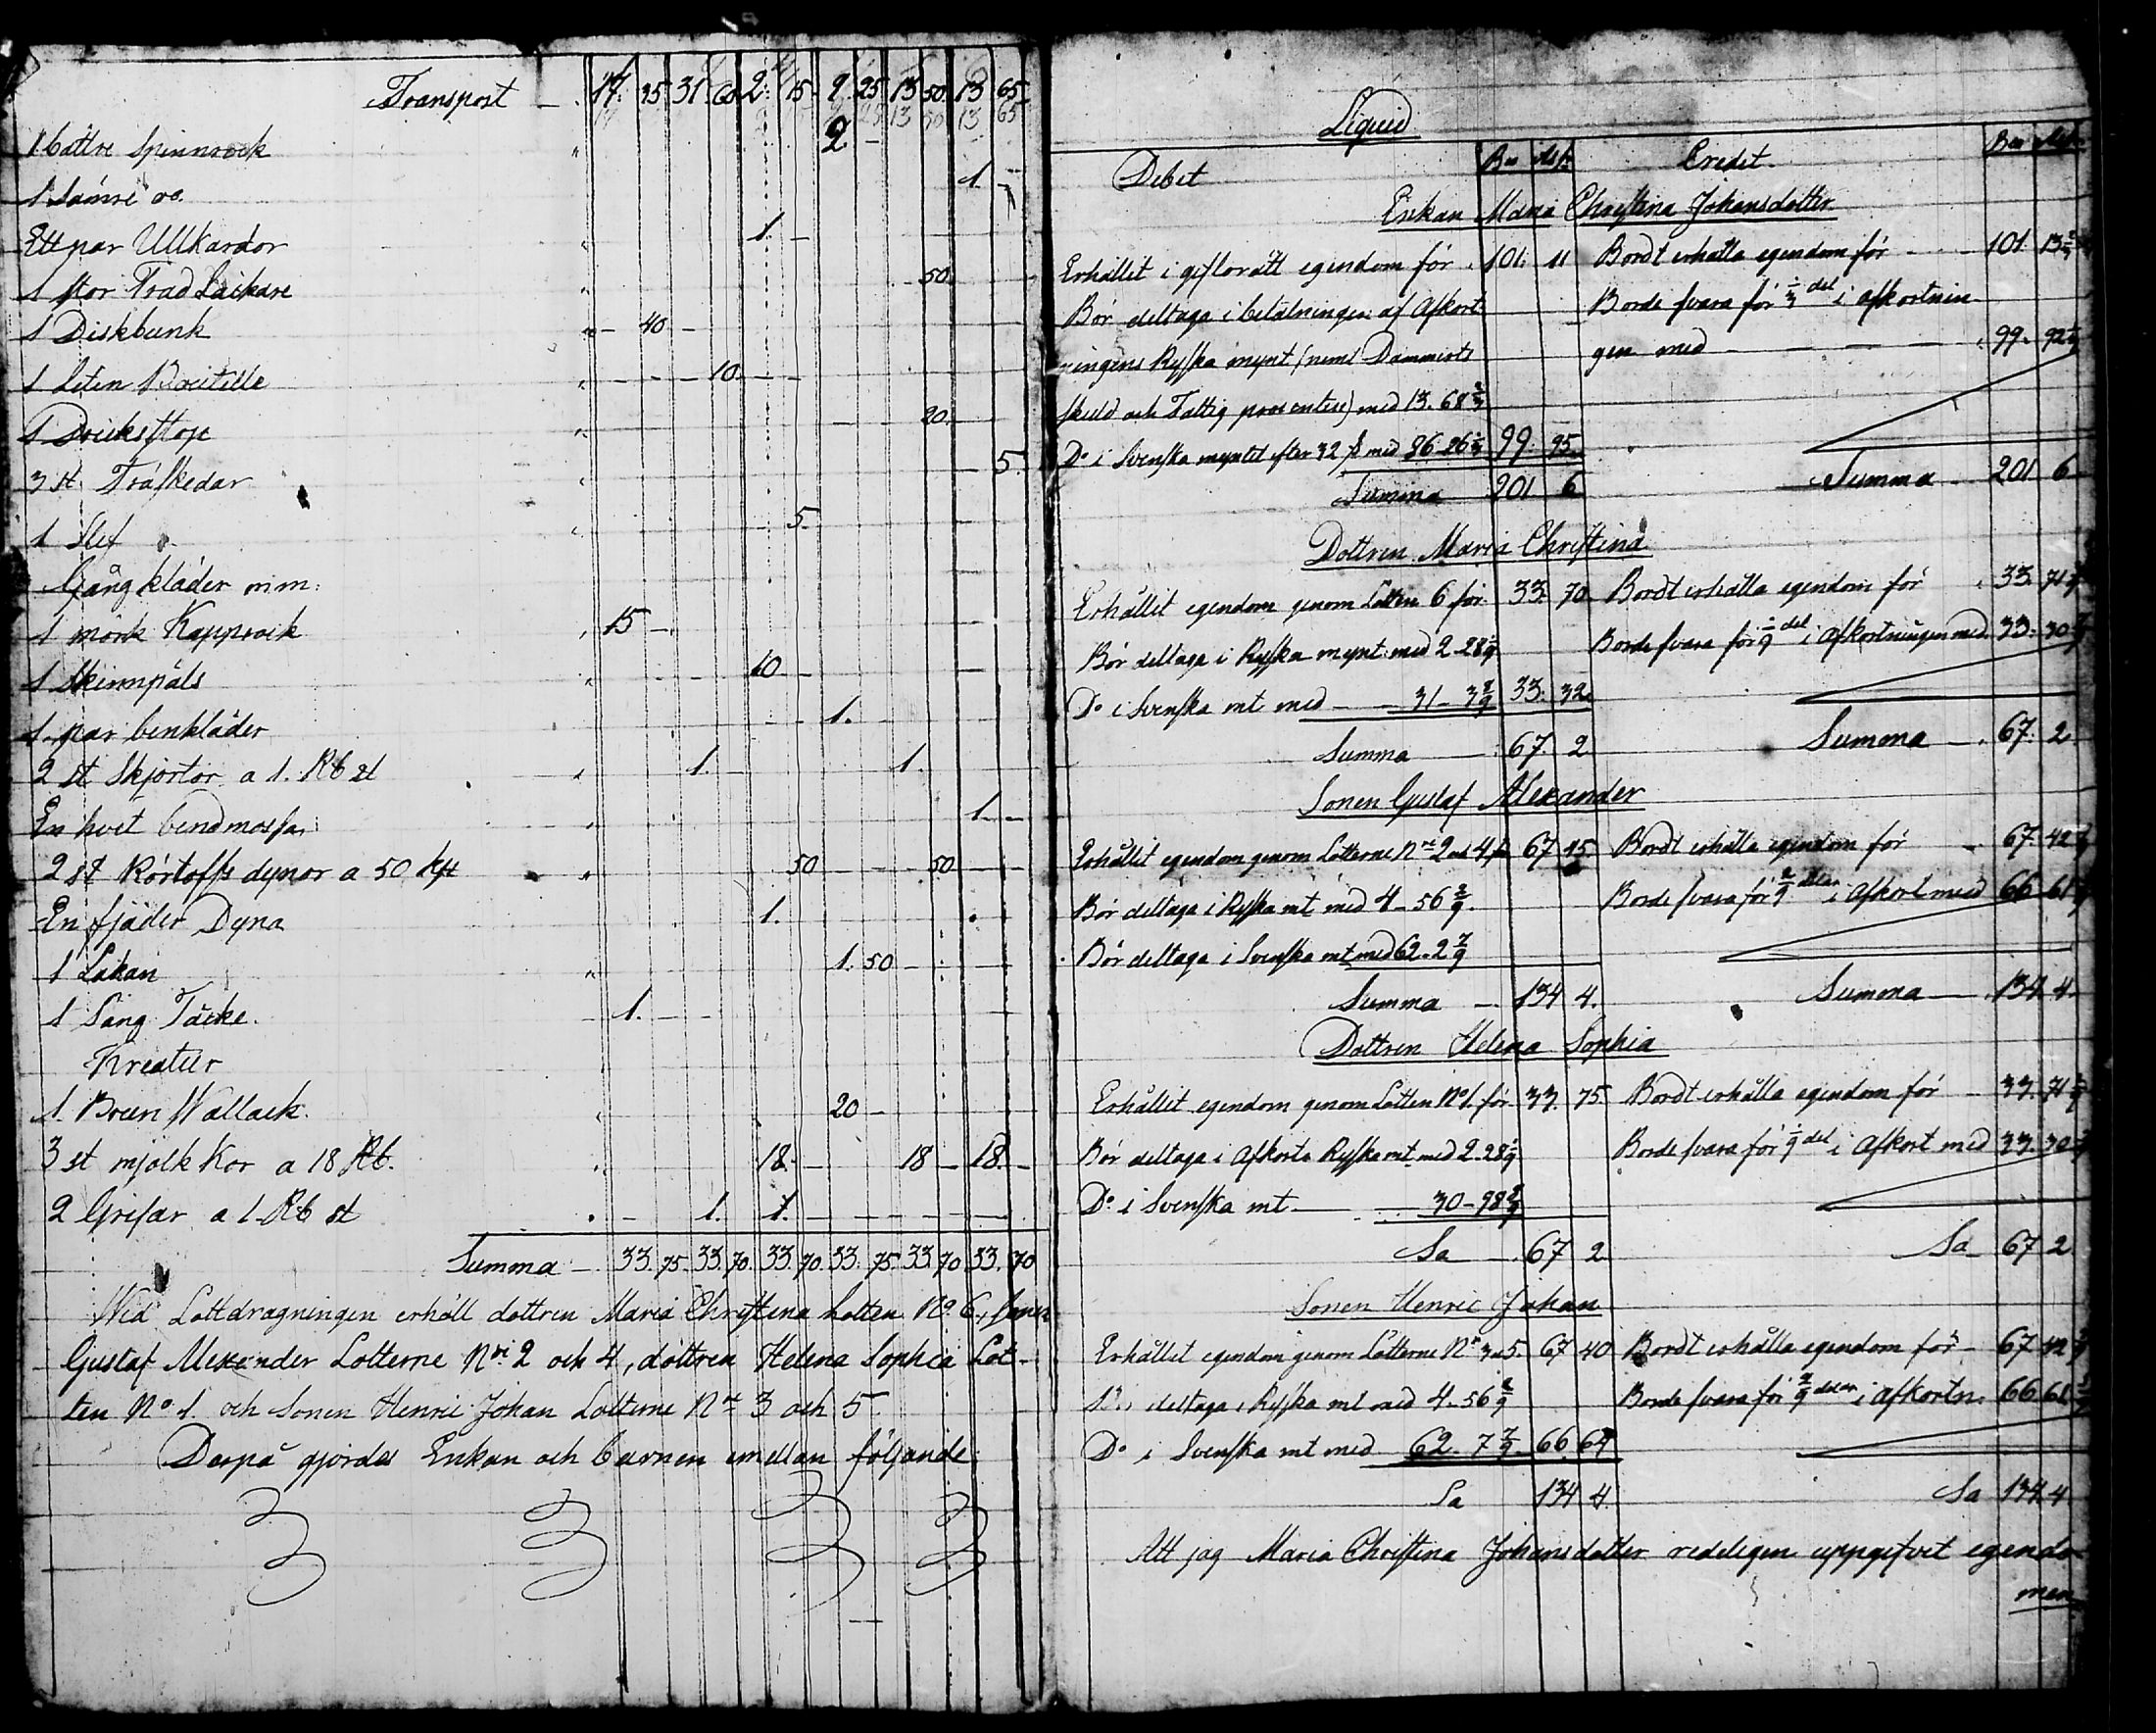 Transport — 17. 35 31. 60 2. 15. 9. 25 13 50 13 65
1 bättre Spinnrock 2. –
1 Sämre do. 1. –
Ett par Ullkardor 1. –
1 stor Träd Läckare 50.
1 Diskbunk 40 –
1 liten Bouteille 10.
1 Dricksstop 20.
3 st Träskedar 5.
1 Slef 5.
Gångkläder m.m:
1 mörk Kapprock 15 –
1 Skinnpäls 10 –
1 par benkläder 1.
2 st Skjortor a 1. Rb st 1. – 1.
En hvit bindmössa 1. –
2 st Rörtofts dynor a 50 kp 50 50
En fjäder Dyna 1.
1 Lakan 1. 50
1 Säng Täcke. 1.
Kreatur
1. Brun Wallack. 20 –
3 st mjölk Kor a 18 Rb. 18. – 18 – 18. –
2 Grisar a 1 Rb st 1. 1.
Summa — 33. 75. 33. 70. 33. 70. 33. 75. 33. 70 33. 70
Wid Lottdragningen erhöll dottren Maria Christina Lotten No 6, Sonen
Gustaf Alexander Lotterne Nri 2 och 4, dottren Helena Sophia Lot-
ten No 1. och Sonen Henric Johan Lotterne Nri 3 och 5.
Derpå gjordes Enkan och barnen emellan följande
Liquid
Debet Credet
Enkan Maria Christina Johansdotter
Erhållit i giftorätt egendom för 101. 11 Bordt erhålla egendom för – – 101. 13 2/3
Bör deltaga i betalningen af Afkort- Borde svara för 1/3 del i afkortnin-
ningens Ryska mynt (neml Dammerts gen med — 99. 92 1/3
skuld och Fattig procenten) med 13. 68 2/3
Do i Svenska myntet efter 32 ß med 86 26 1/3 99. 95.
Summa 201 6 Summa — 201 6
Dottren Maria Christina
Erhållit egendom genom Lotten 6 för 33. 70 Bordt erhålla egendom för 33. 71
Bör deltaga i Ryska mynt med 2 28 1/9 Borde svara för 1/9 del i afkortningen med 33. 30
Do i Svenska mt med — 31 – 3 8/9 33. 32.
Summa — 67. 2 Summa — 67. 2
Sonen Gustaf Alexander
Erhållit egendom genom Lotterne Nri 2 och 4 för 67 45. Bordt erhålla egendom för – 67. 42
Bör deltaga i Ryska mt med 4 – 56 2/9. Borde svara för 2/9 delar i Afkort med 66 61
Bör deltaga i Svenska mt med 62. 2 7/9
Summa — 134 4. Summa — 134. 4
Dottren Helena Sophia
Erhållit egendom genom Lotten No 1. för 33. 75. Bordt erhålla egendom för – 33. 71
Bör deltaga i Afkortn Ryska mt med 2 28 1/9 Borde svara för 1/9 del i Afkort med 33. 30
Do i Svenska mt — 30 – 98 8/9
Sa 67 2 Sa 67 2
Sonen Henric Johan
Erhållit egendom genom Lotterne Nri 3 och 5. 67 40 Bordt erhålla egendom för – 67 42
deltaga i Ryska mt med 4. 56 2/9 Borde svara för 2/9 delar i afkortn: 66 61
Do i Svenska mt med 62. 7 7/9 66 64
Sa 134 4 Sa 134. 4
Att jag Maria Christina Johansdotter redeligen uppgifvit egendo
men